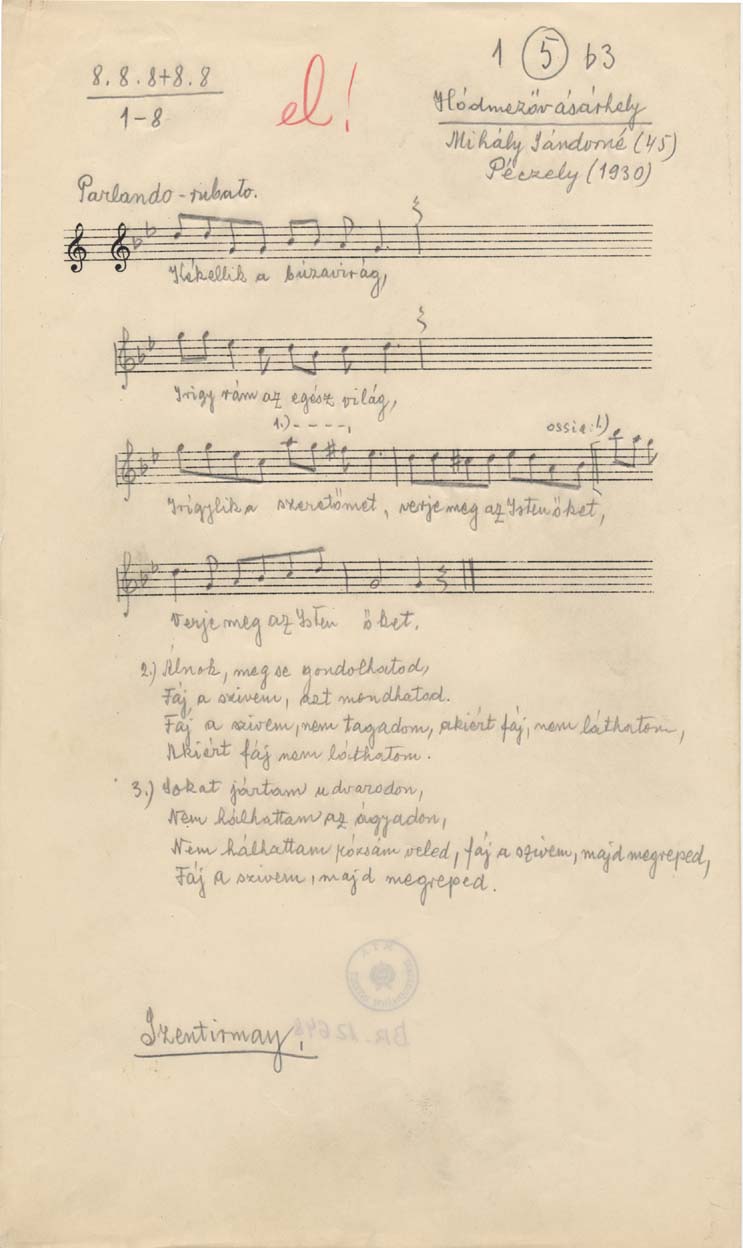 8.8.8+8.8
1-8
el!
1 5 b3
Hódmezővásárhely
Mihály Sándorné (45)
Péczely (1930)
Parlando-rubato.
Kékellik a búzavirág,
Irigy rám az egész világ,
1.) ossia: 1.)
Irigylik a szeretőmet, verje meg az Isten őket,
Verje meg az Isten őket.
2.) Álnok, meg se gondolhatod,
Fáj a szivem, azt mondhatod.
Fáj a szivem, nem tagadom, akiért fáj, nem láthatom,
Akiért fáj nem láthatom.
3.) Sokat jártam udvarodon,
Nem hálhattam az ágyadon,
Nem hálhattam rózsám veled, fáj a szivem, majd megreped,
Fáj a szivem, majd megreped.
Szentirmay.